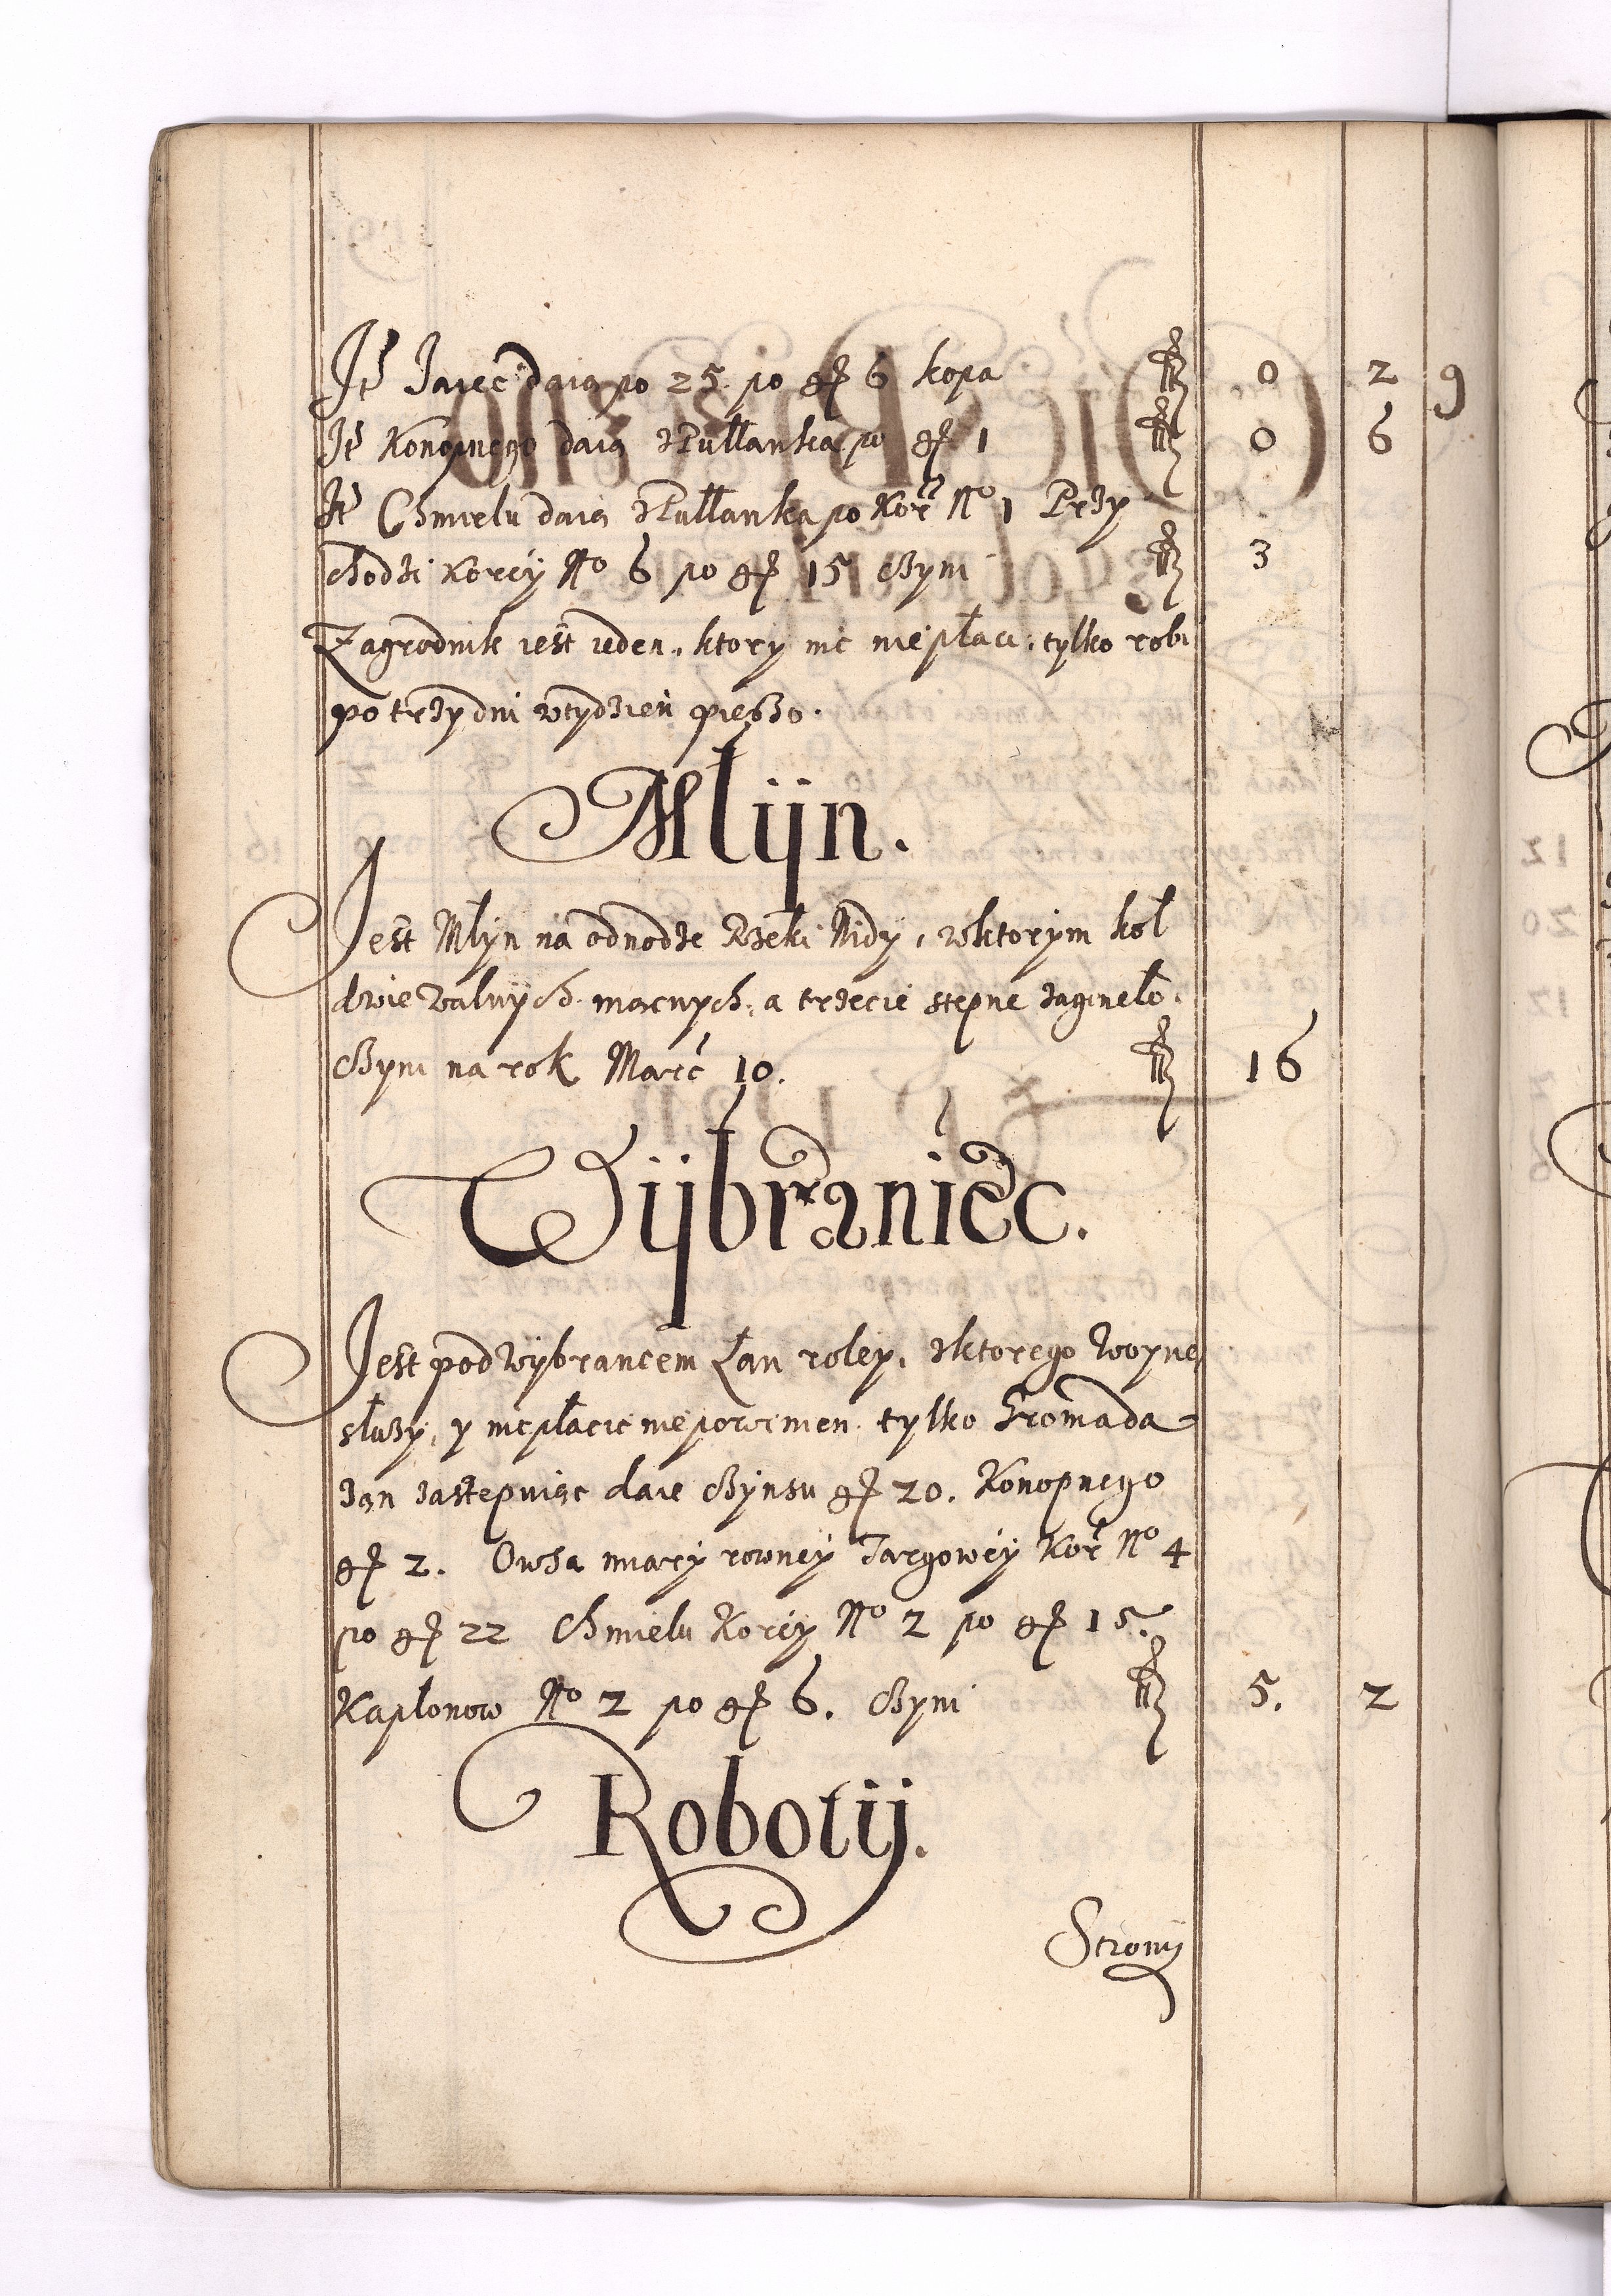 Itē Jaiec daią po 25 po gr 6 kopa fl 0 2 9
Itē Konopnego daią z Pułłanka po gr 1 fl 0 6
Itē Chmielu daią z Pułłanka po Kor̃ No 1 Przy
chodzi Korcy No 6 po gr 15 czyni fl 3
Zagrodnik iest ieden, ktory nic niepłaci, tylko robi
po trzy dni w tydzień pieszo.
Młyn.
Jest Młyn na odnodze Rzeki Nidy, w ktorym koł
dwie walnych mącznych, a trzecie stępne zagineło.
czyni na rok Marc 10. fl 16
Wybraniec.
Jest pod wybrancem Łan roley, z ktorego woynę
słuzy, y nic płacic niepowinien tylko Gromada
zan zastępuiąc daie czynsu gr 20. Konopnego
gr 2. Owsa miary rowney Targowey Kor̃ No 4
po gr 22 Chmielu Korcy No 2 po gr 15.
Kapłonow No 2 po gr 6. czyni fl 5. 2
Roboty.
Strony